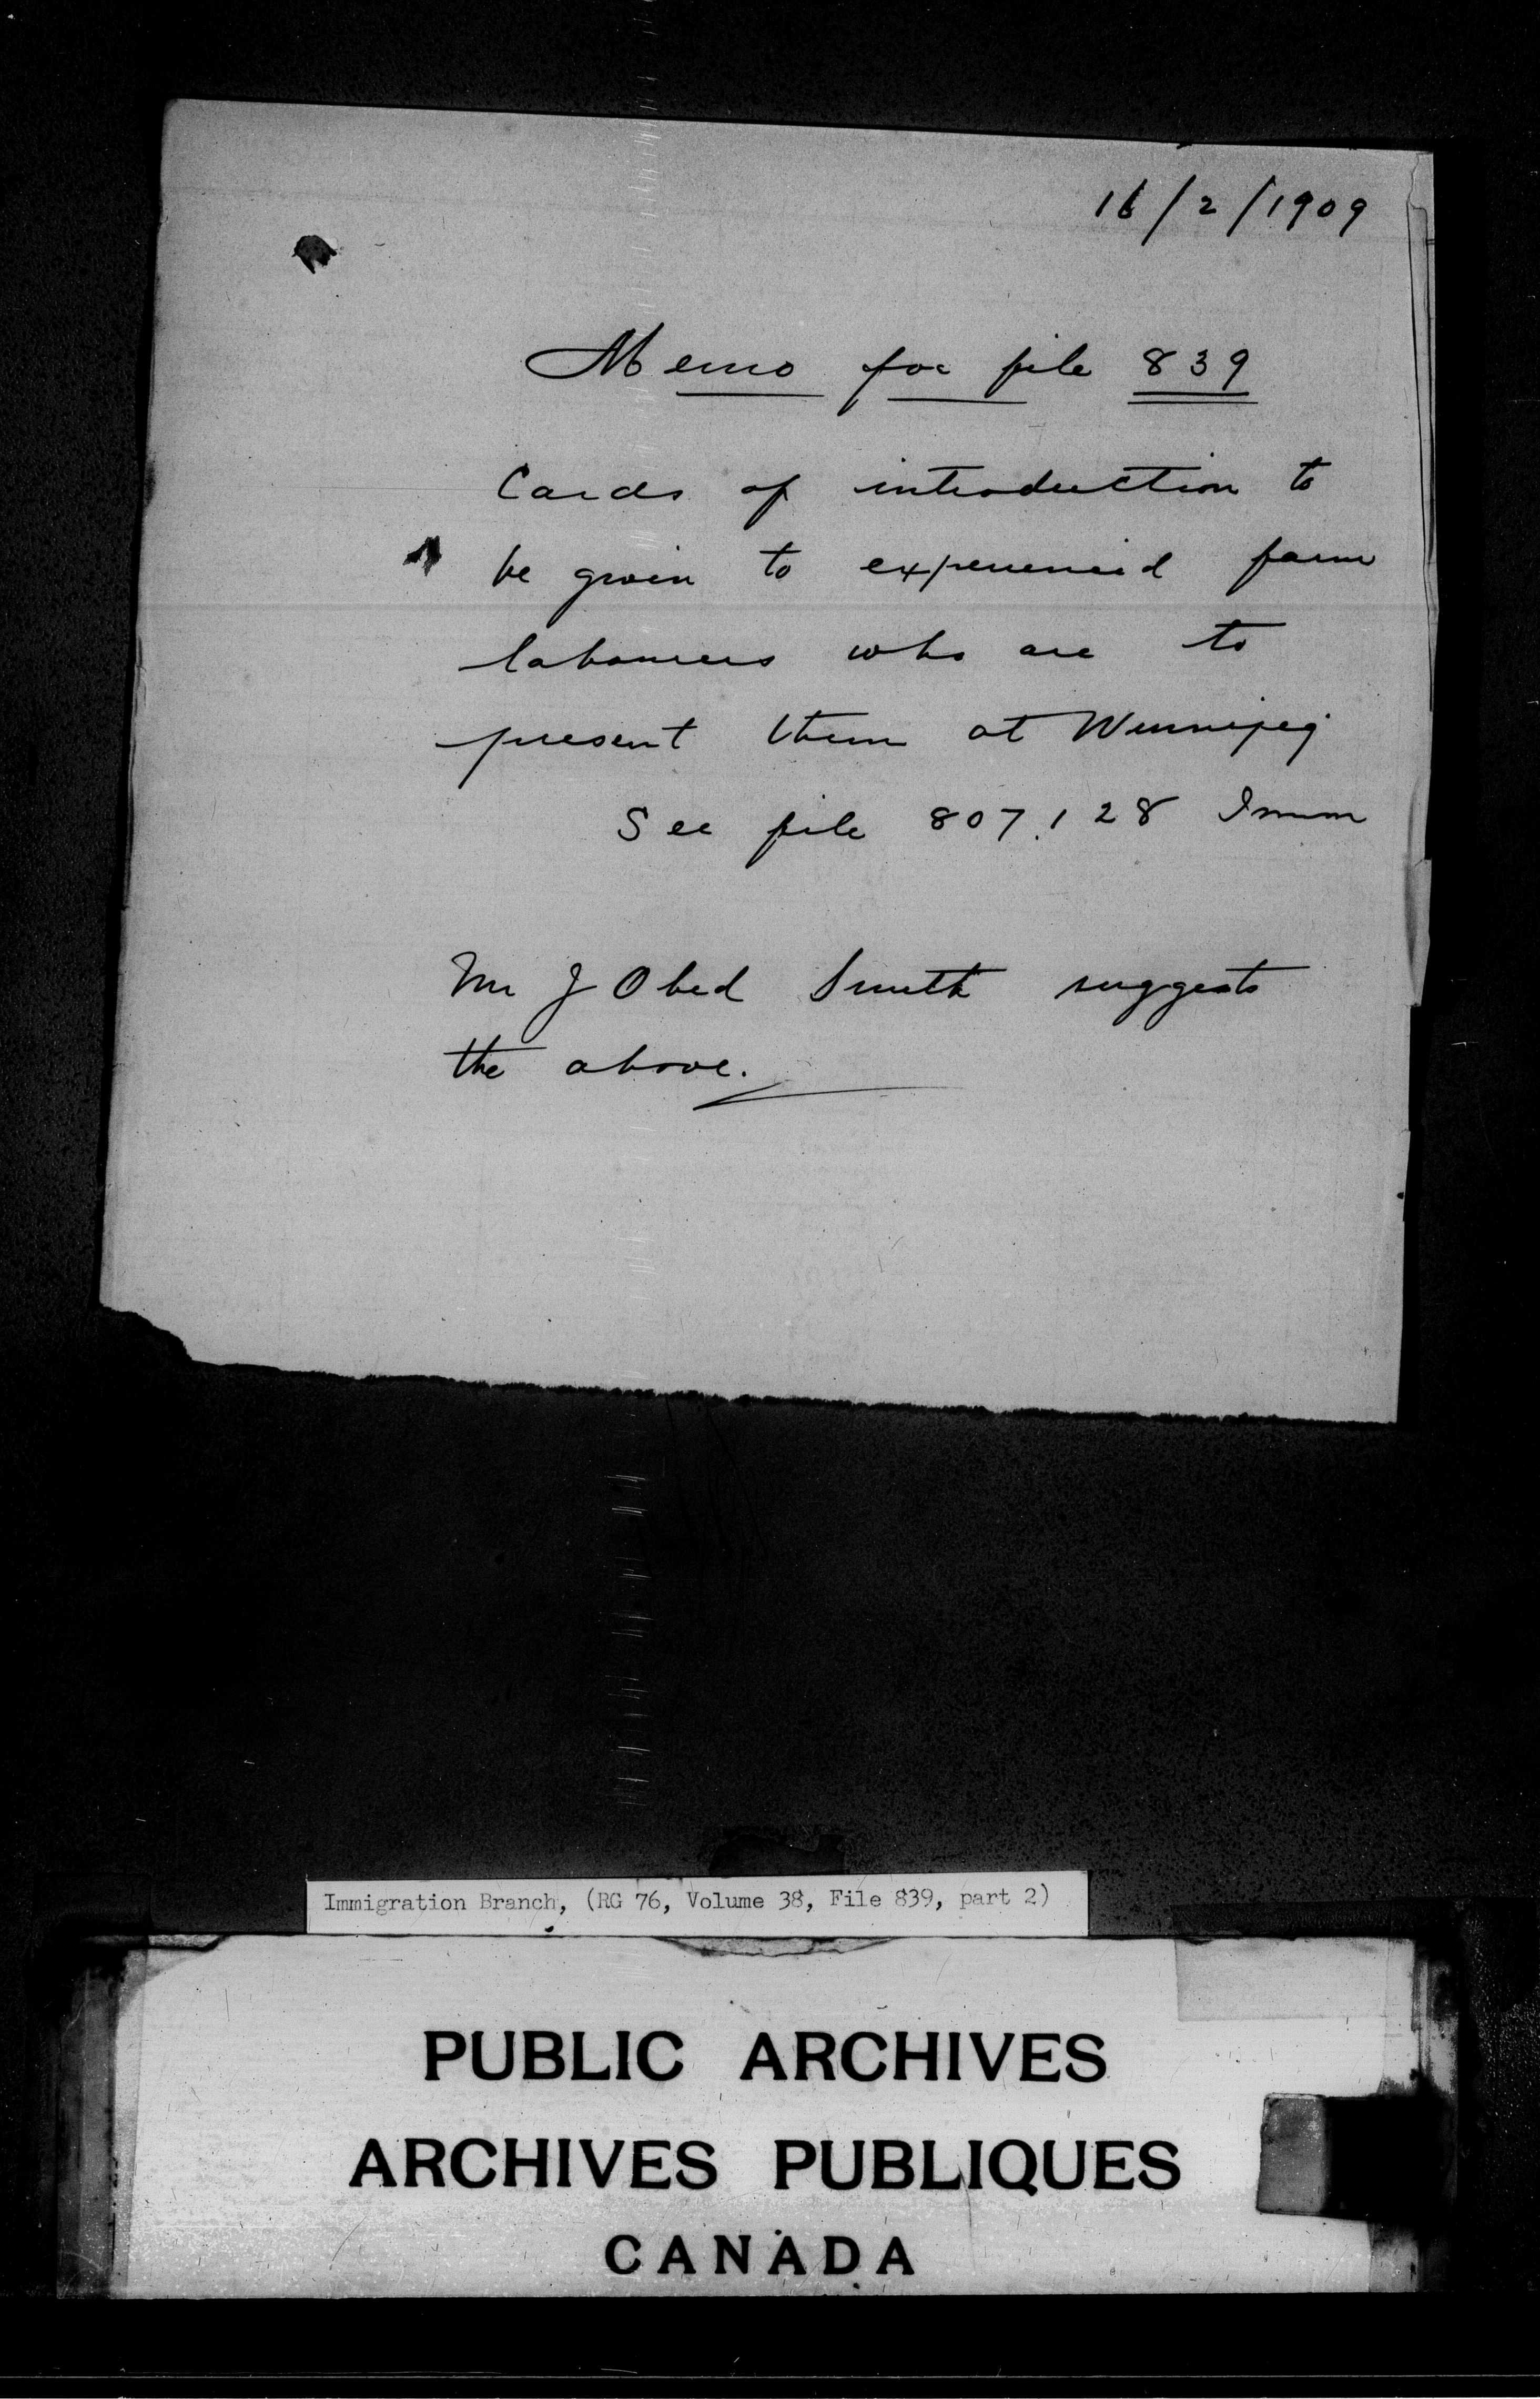 16/2/1909
Memo for file 839
Cards of introduction to
be given to experienced farm
labourers who are to
present them at Winnipeg
See file 807.128 Imm
Mr J Obed Smith suggests
the above.
Immigration Branch, (RG 76, Volume 38, File 839, part 2)
PUBLIC ARCHIVES
ARCHIVES PUBLIQUES
CANADA